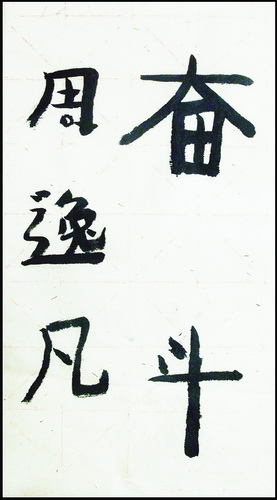 奋斗
周逸凡